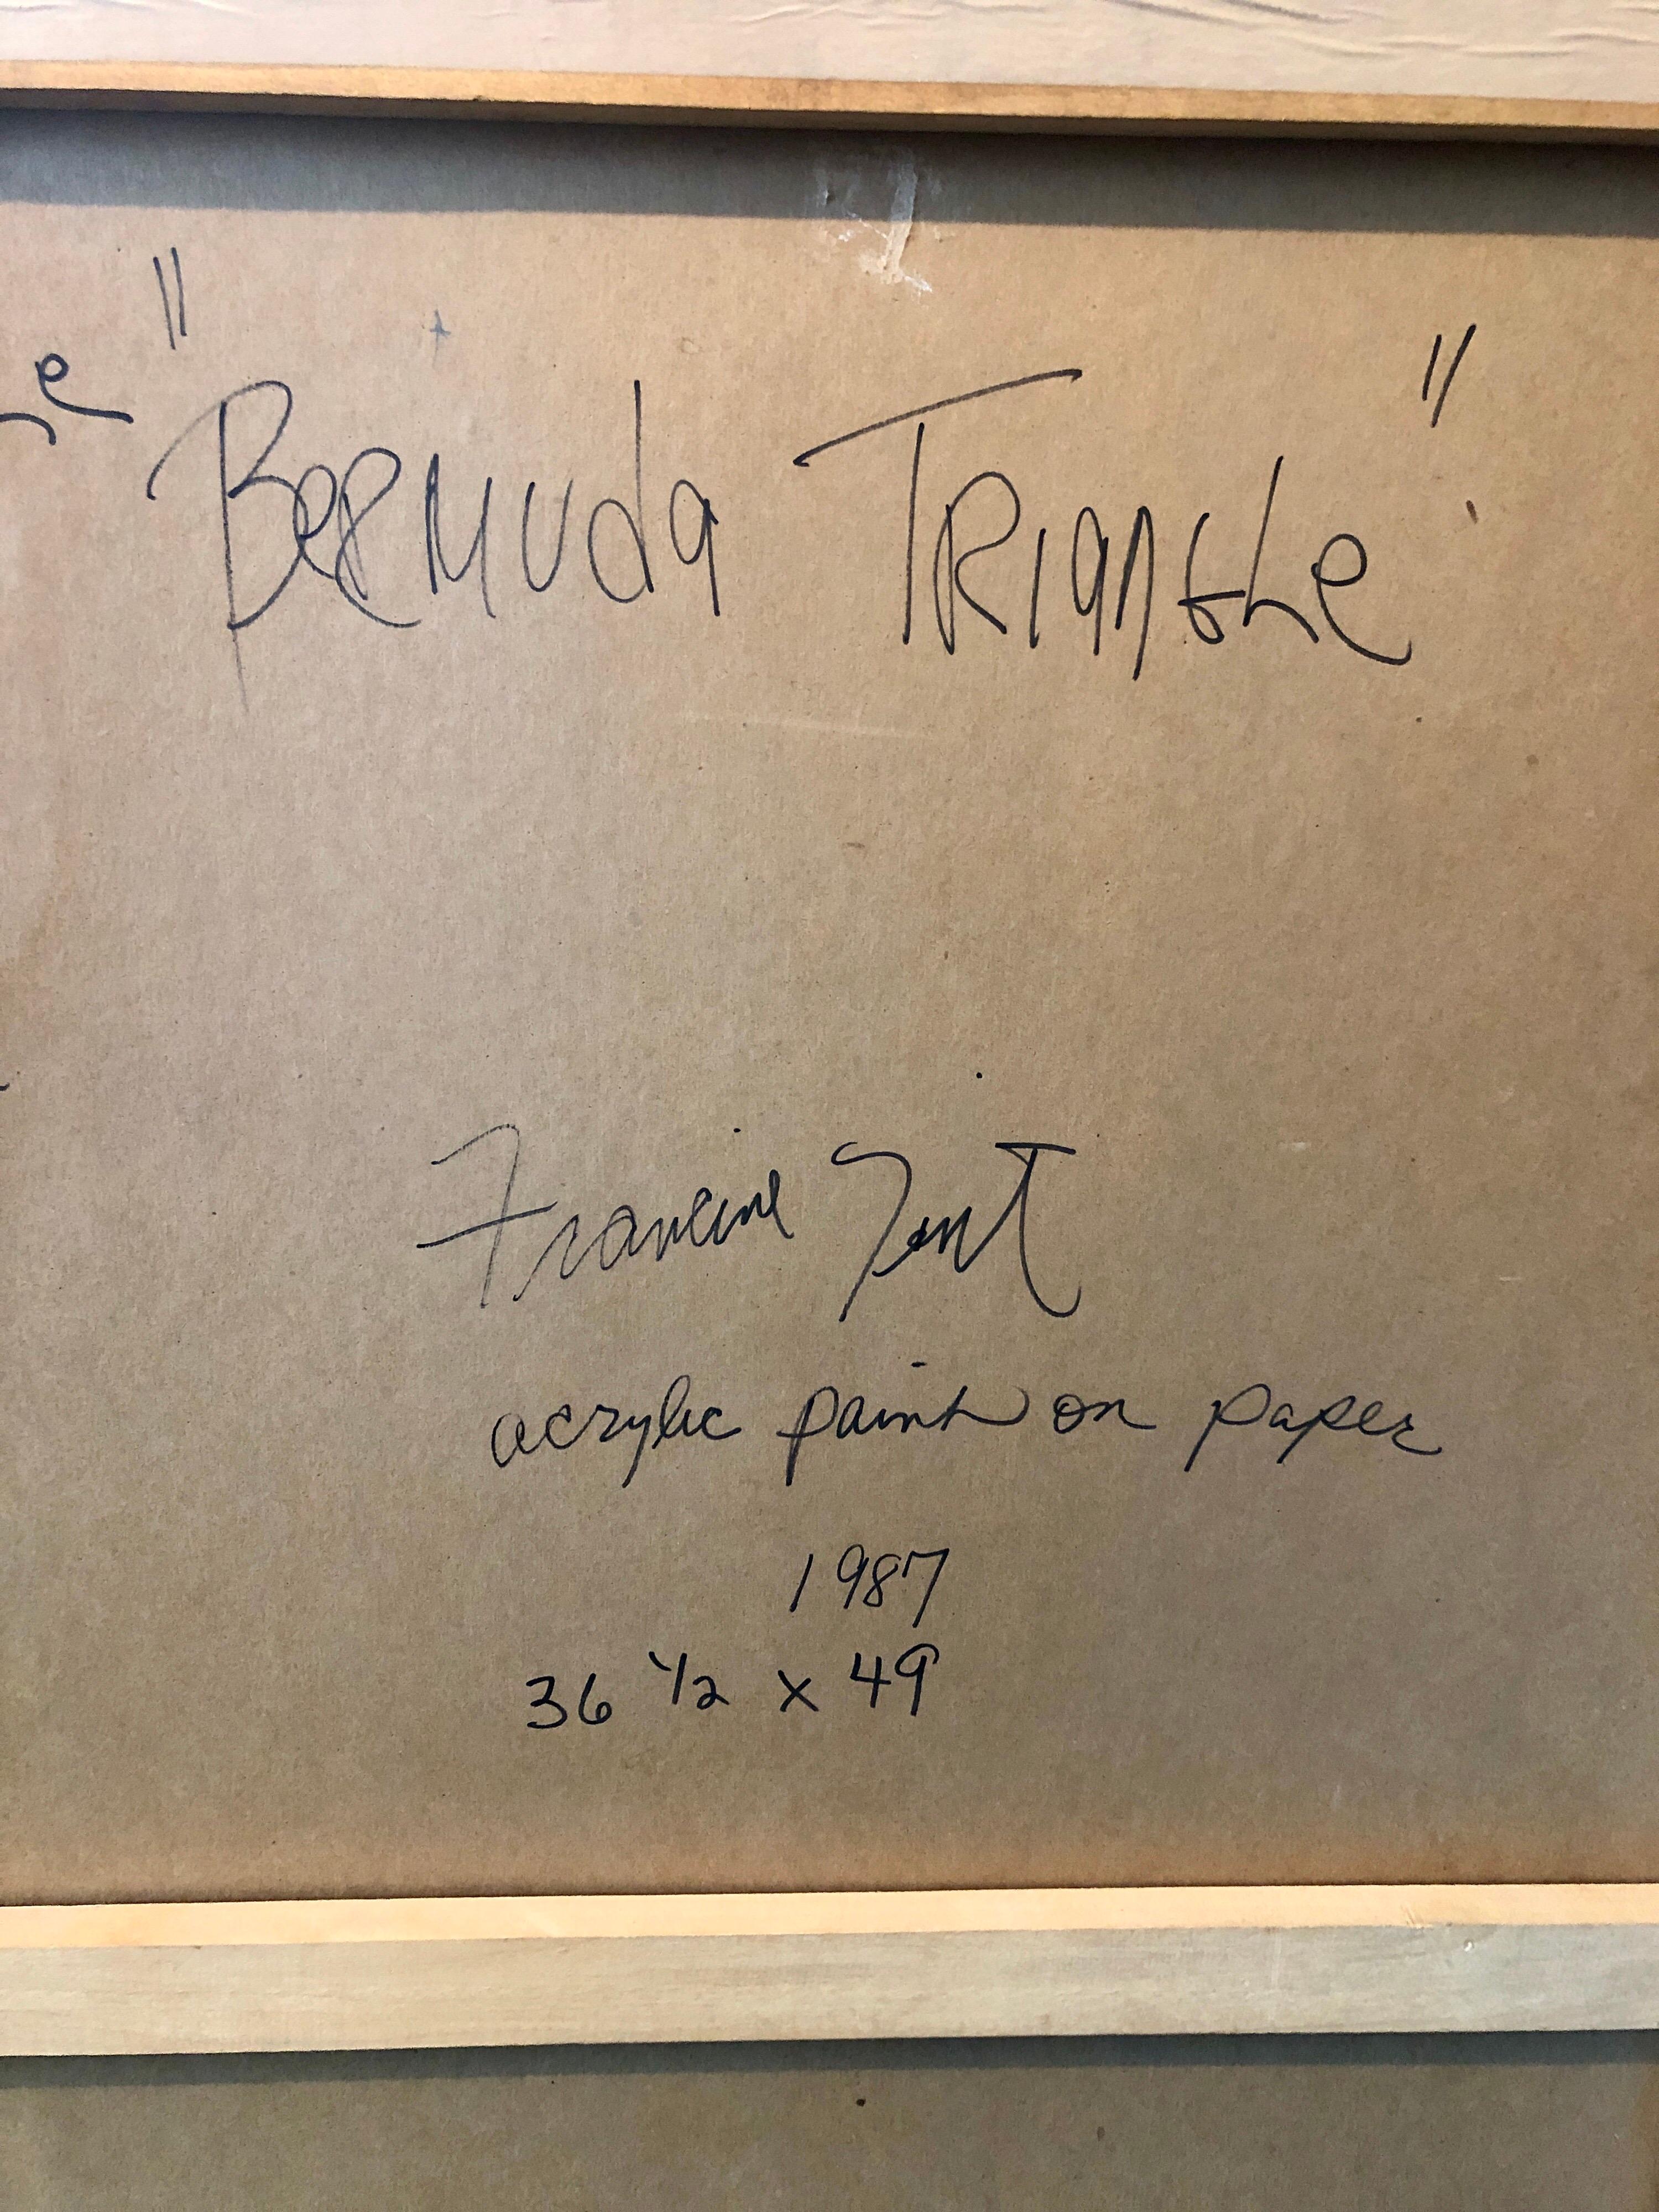 "Bermuda Triangle"
Francine Tint
acrylic paint on paper
1987
36 1/2 x 49